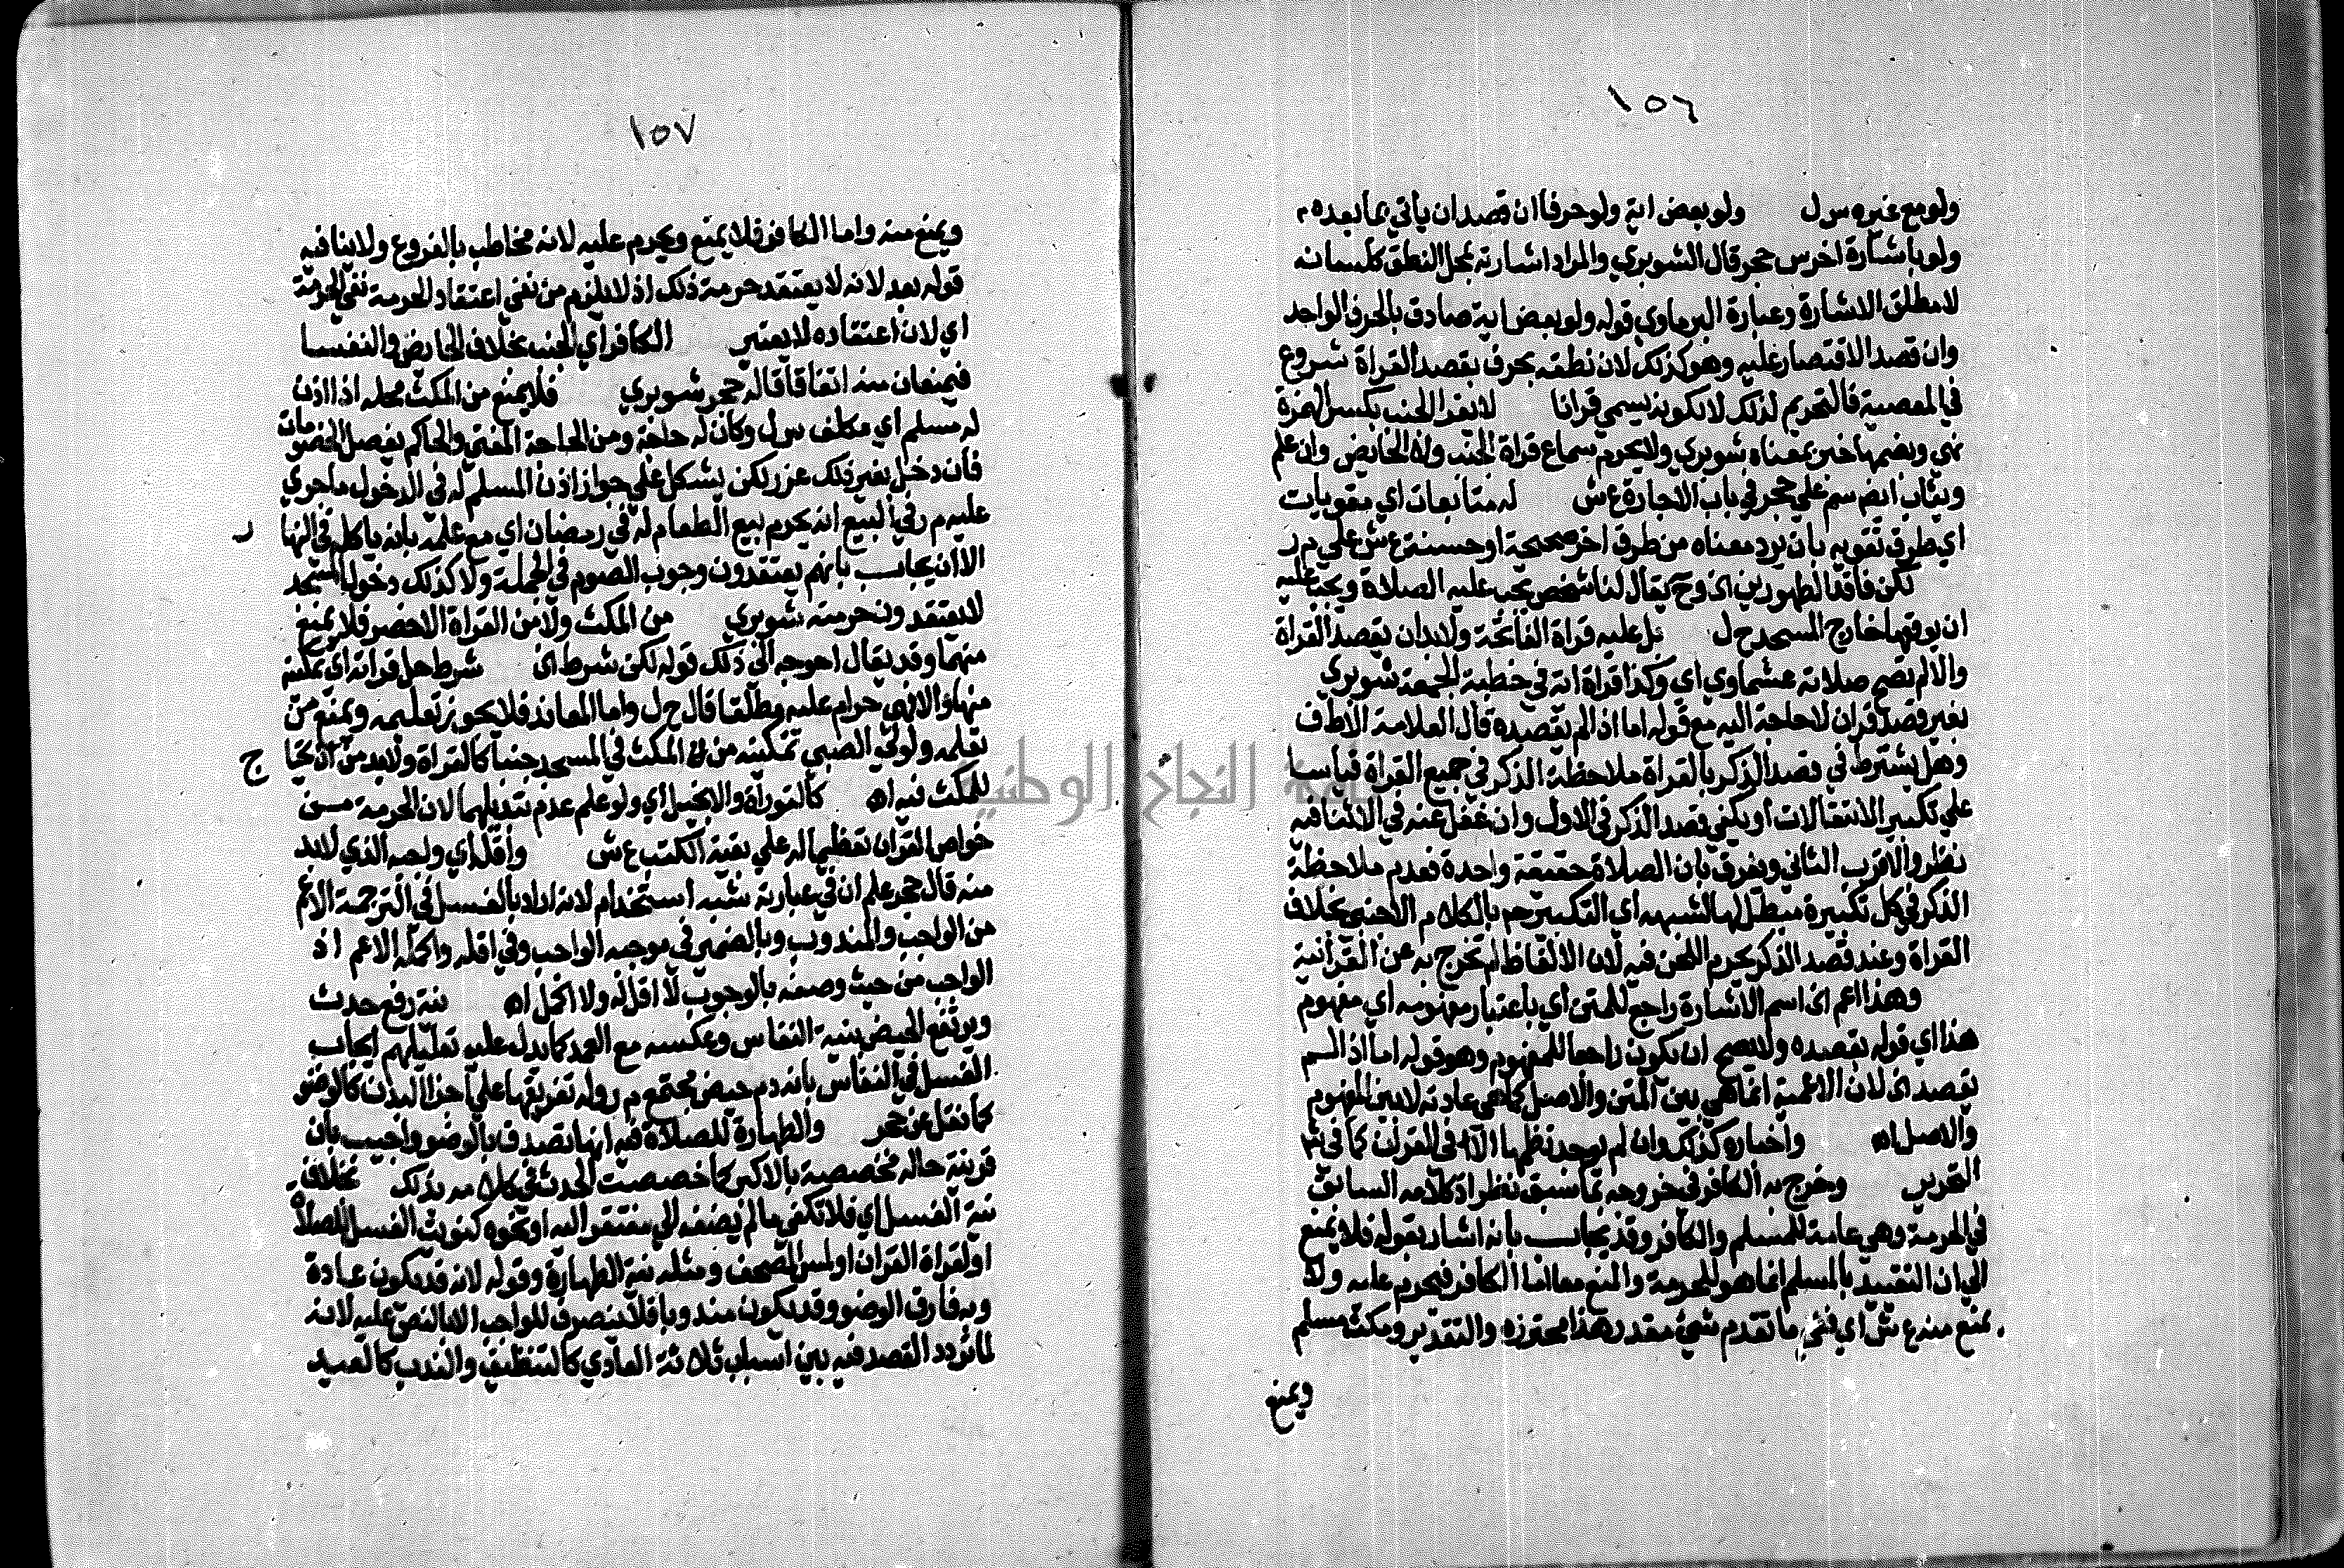 ١٥٦
ولو مع غيره س ل ولو بعض اية ولو حرفا ان قصد ان ياتي بما بعده م
ولو باشارة اخرس حجر قال الشوبري والمراد اشارته بمحل النطق كلسانه
لا مطلق الاشارة وعبارة البرماوي قوله ولو بعض اية صادق بالحرف الواحد
وان قصد الاقتصار عليه وهو كذلك لان نطقه بحرف بقصد القراة شروع
في المعصية فالتحريم لذلك لا لكونه يسمى قرانا لا يقرا الجنب بكسر الهمزة
نهي وبضمها خبر بمعناه شوبري ولا يحرم سماع قراة الجنب ولا الحايض وان علم
ويثاب ايضا سم علي حجر في باب الاجارة ع ش له متابعات اي مقويات
اي طرق تقويه بان يرد معناه من طرق اخر صحيحة او حسنة ع ش علي م ر
لكن فاقد الطهورين اي وح يقال لنا شخص يجب عليه الصلاة ويجب عليه
ان يوقعها خارج المسجد ح ل بل عليه قراة الفاتحة ولا بد ان يقصد القراة
والا لم تصح صلاته عشماوي اي وكذا قراة اية في خطبة الجمعة شوبري
بغير قصد قران لا حاجة اليه مع قوله اما اذا لم يقصده قال العلامة الاطف
وهل يشترط في قصد الذكر بالقراة ملاحظة الذكر في جميع القراة قياسا
علي تكبير الانتقالات او يكفي قصد الذكر في الاول وان غفل عنه في الاثنا فيه
نظر والاقرب الثاني ويفرق بان الصلاة حقيقة واحدة فعدم ملاحظة
الذكر في كل تكبيرة مبطل لها لشبهه اي التكبير ح بالكلام الاجنبي بخلاف
القراة وعند قصد الذكر يحرم اللحن فيه لان الالفاظ لم تخرج به عن القرانية
وهذا اعم اي اسم الاشارة راجع للمتن اي باعتبار مفهومه اي مفهوم
هذا اي قوله بقصده ولا يصح ان يكون راجعا للمفهوم وهو قوله اما اذا لم
يقصد اي لان الاعمية انما هي بين المتن والاصل كما هي عادته لا بين المفهوم
والاصل اه واخباره كذلك وان لم يوجد نظمها الا في القران كما في
التحرير وخرج به الكافر في خروجه بما سبق نظر اذ كلامه السابق
في الحرمة وهي عامة للمسلم والكافر وقد يجاب بانه اشار بقوله فلا يمنع
الي ان التقييد بالمسلم انما هو للحرمة والمنع معا اما الكافر فيحرم عليه ولا
يمنع منه ع ش اي ففي ما تقدم شيئ مقدر هذا محترزه والتقدير ومكث مسلم
ويمنع
١٥٧
ويمنع منه واما الكافر فلا يمنع ويحرم عليه لانه مخاطب بالفروع ولا ينافيه
قوله بعد لانه لا يعتقد حرمة ذلك اذ لا يلزم من نفي اعتقاد الحرمة نفي الحرمة
اي لان اعتقاده لا يعتبر الكافر اي الجنب بخلاف الحايض والنفسا
فيمنعان منه اتفاقا قاله حجر شوبري فلا يمنع من المكث محله اذا اذن
له مسلم اي مكلف س ل وكان له حاجة ومن الحاجة المفتي والحاكم يفصل الخصومات
فان دخل بغير ذلك عزر لكن يشكل علي جواز اذن المسلم له في الدخول ما جري
عليه م ر في البيع انه يحرم بيع الطعام له في رمضان اي مع علمه بانه ياكله في النهار
الا ان يجاب بانهم يعتقدون وجوب الصوم في الجملة ولا كذلك دخول المسجد
لا يعتقدون حرمته شوبري من المكث ولا من القراة الاخصر فلا يمنع
منهما وقد يقال احوجه الي ذلك قوله لكن شرط اي شرط حل قراته اي تمكنه
منها والا فهي حرام عليه مطلقا قال ح ل واما المعاند فلا يجوز تعليمه ويمنع من
تعلمه ولولي الصبي تمكينه من المكث في المسجد جنبا كالقراة ولا بد من ان يحتاج
للمكث فيه اه كالتوراة والانجيل اي ولو علم عدم تبديلهما لان الحرمة من
خواص القران تعظيما له علي بقية الكتب ع ش واقله اي واجبه الذي لا بد
منه قال حجر علم ان في عبارته شبه استخدام لانه اراد بالغسل في الترجمة الاعم
من الواجب والمندوب وبالضمير في موجبه الواجب وفي اقله واكمله الاعم اذ
الواجب من حيث وصفه بالوجوب لا اقل له ولا اكمل اه نية رفع حدث
ويرتفع الحيض بنية النفاس وعكسه مع العمد كما يدل عليه تعليلهم ايجاب
الغسل في النفاس بانه دم حيض مجتمع م ر وله تفريقها علي اجزا البدن كالوضو
كما نقل عن حجر والطهارة للصلاة فيه انها تصدق بالوضو واجيب بان
قرينة حاله مخصصة بالاكبر كما خصصت الحدث في كلامه بذلك بخلاف
نية الغسل اي فلا تكفي ما لم يضفه الي مفتقر اليه او نحوه كنويت الغسل للصلاة
او لقراة القران او لمس المصحف ومثله نية الطهارة وقوله لانه قد يكون عادة
وبه فارق الوضو وقد يكون مندوبا فلا ينصرف للواجب الا بالنص عليه لانه
لما تردد القصد فيه بين اسباب ثلاثة العادي كالتنظيف والندب كالعيد
جامعة النجاح الوطنية